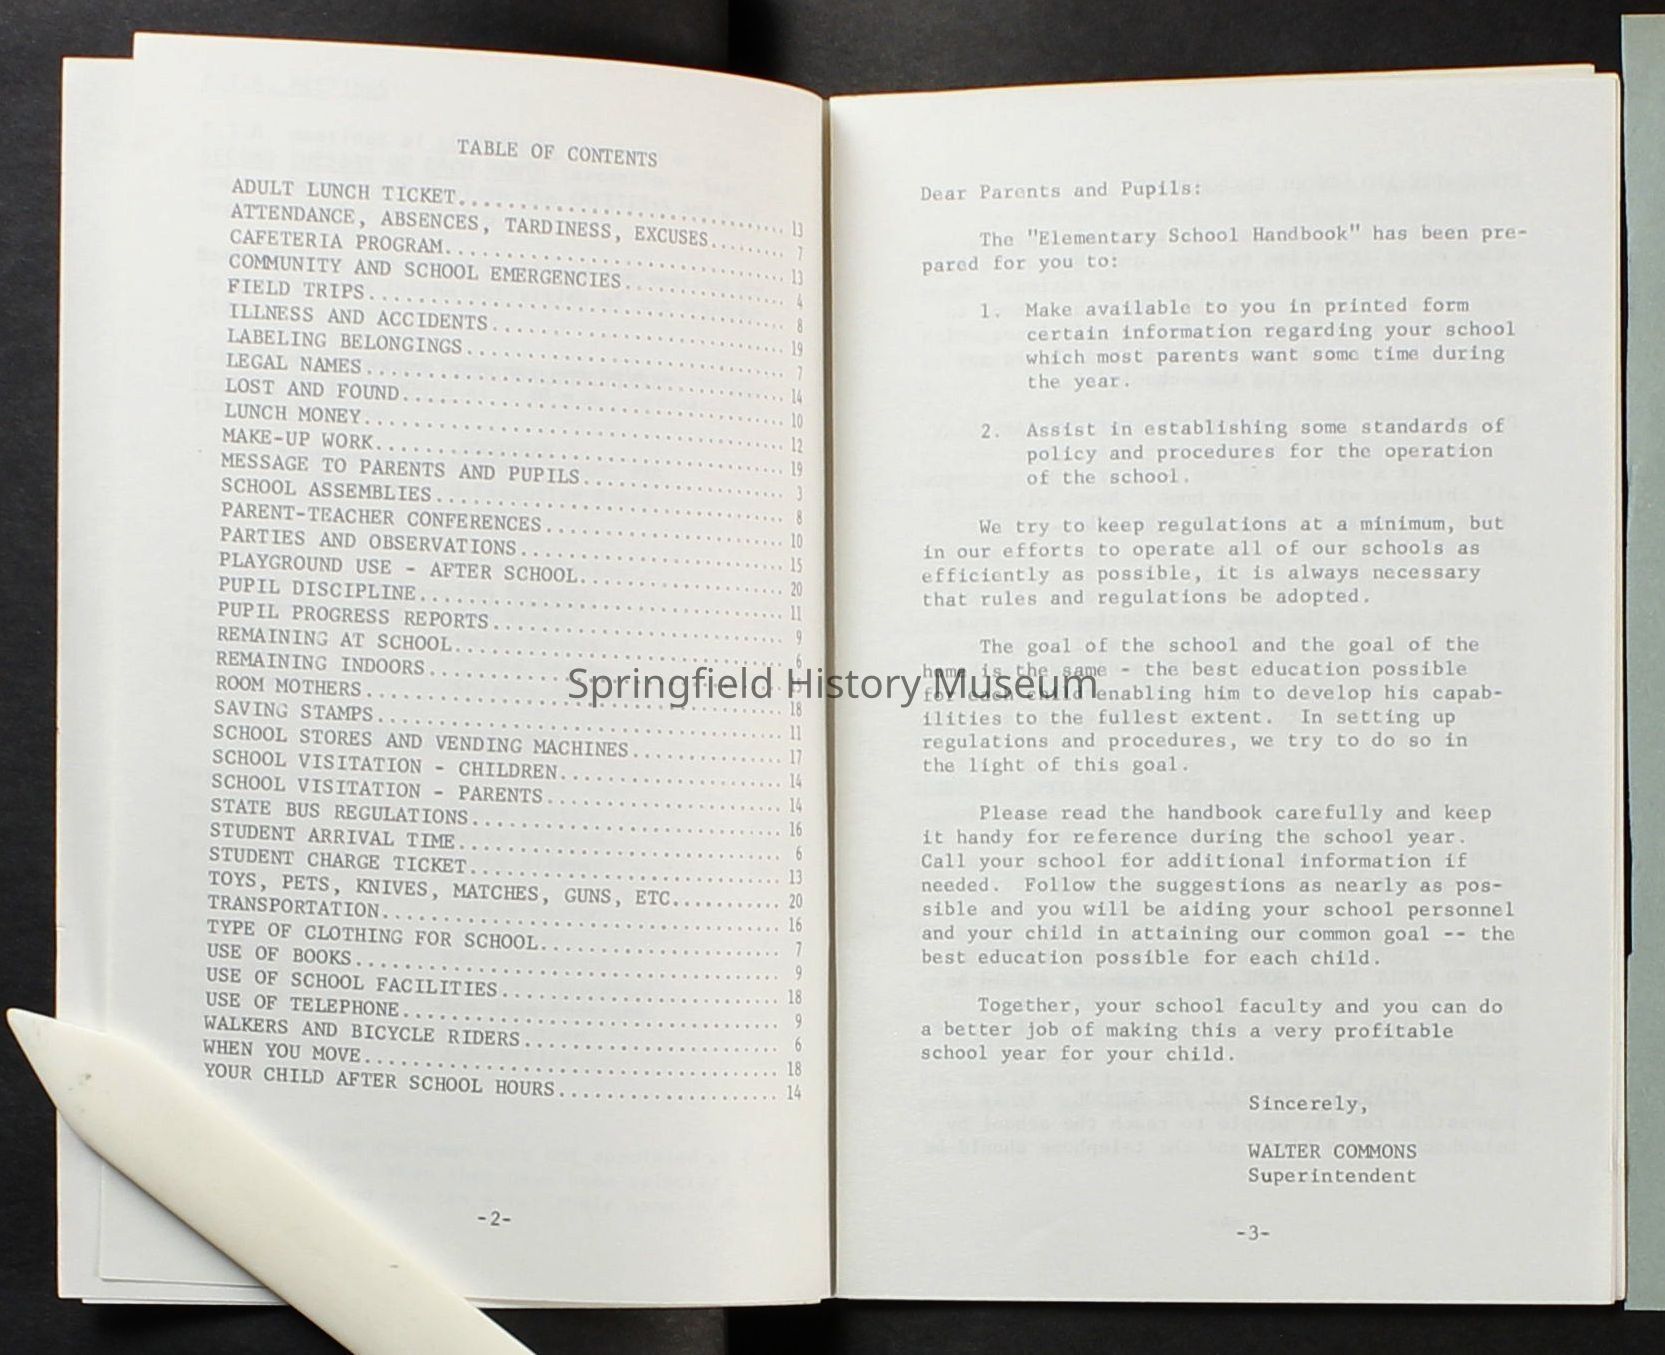 TABLE OF CONTENTS
ADULT LUNCH TICKET............................ 13
ATTENDANCE, ABSENCES, TARDINESS, EXCUSES........ 7
CAFETERIA PROGRAM............................ 13
COMMUNITY AND SCHOOL EMERGENCIES................ 4
FIELD TRIPS.................................. 8
ILLNESS AND ACCIDENTS........................ 19
LABELING BELONGINGS.......................... 7
LEGAL NAMES.................................. 14
LOST AND FOUND............................... 10
LUNCH MONEY.................................. 12
MAKE-UP WORK................................. 19
MESSAGE TO PARENTS AND PUPILS................... 3
SCHOOL ASSEMBLIES............................ 8
PARENT-TEACHER CONFERENCES................... 10
PARTIES AND OBSERVATIONS..................... 15
PLAYGROUND USE - AFTER SCHOOL................. 20
PUPIL DISCIPLINE............................. 11
PUPIL PROGRESS REPORTS....................... 9
REMAINING AT SCHOOL.......................... 6
REMAINING INDOORS............................
ROOM MOTHERS................................. 18
SAVING STAMPS................................ 11
SCHOOL STORES AND VENDING MACHINES............ 17
SCHOOL VISITATION - CHILDREN.................. 14
SCHOOL VISITATION - PARENTS................... 14
STATE BUS REGULATIONS........................ 16
STUDENT ARRIVAL TIME......................... 6
STUDENT CHARGE TICKET........................ 13
TOYS, PETS, KNIVES, MATCHES, GUNS, ETC......... 20
TRANSPORTATION............................... 16
TYPE OF CLOTHING FOR SCHOOL................... 7
USE OF BOOKS................................. 9
USE OF SCHOOL FACILITIES..................... 18
USE OF TELEPHONE............................. 9
WALKERS AND BICYCLE RIDERS................... 6
WHEN YOU MOVE................................ 18
YOUR CHILD AFTER SCHOOL HOURS................. 14
-2-
Dear Parents and Pupils:
The "Elementary School Handbook" has been pre-
pared for you to:
1. Make available to you in printed form
certain information regarding your school
which most parents want some time during
the year.
2. Assist in establishing some standards of
policy and procedures for the operation
of the school.
We try to keep regulations at a minimum, but
in our efforts to operate all of our schools as
efficiently as possible, it is always necessary
that rules and regulations be adopted.
The goal of the school and the goal of the
home is the same - the best education possible
for each child enabling him to develop his capab-
ilities to the fullest extent. In setting up
regulations and procedures, we try to do so in
the light of this goal.
Please read the handbook carefully and keep
it handy for reference during the school year.
Call your school for additional information if
needed. Follow the suggestions as nearly as pos-
sible and you will be aiding your school personnel
and your child in attaining our common goal -- the
best education possible for each child.
Together, your school faculty and you can do
a better job of making this a very profitable
school year for your child.
Sincerely,
WALTER COMMONS
Superintendent
-3-
Springfield History Museum